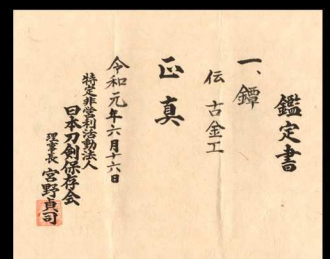 鑑定書
一、鐔
伝 古金工
正真
令和元年六月十六日
特定非営利活動法人
日本刀剣保存会
理事長 宮野貞司